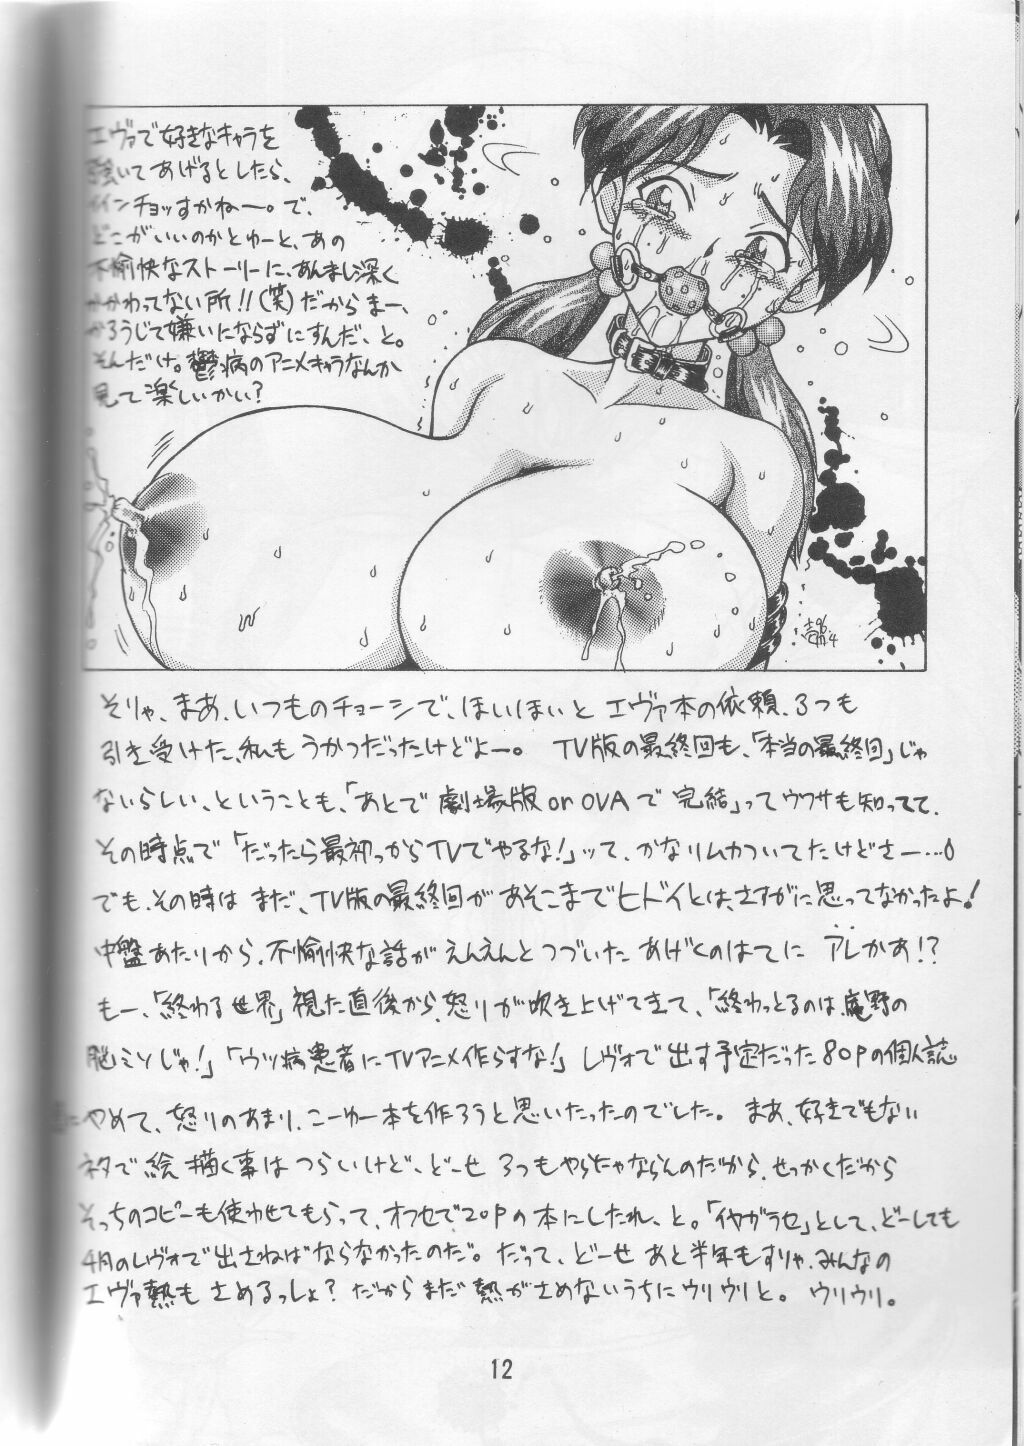 エヴァで好きなキャラを
強いてあげるとしたら、
イインチョッすかねー。で、
どこがいいのかとゆーと、あの
不愉快なストーリーに、あんまし深く
かかわってない所!!(笑)だからまー、
かろうじて嫌いにならずにすんだ、と。
そんだけ。鬱病のアニメキャラなんか
見て楽しいかい?
そりゃ、まあ、いつものチョーシで、ほいほいと エヴァ本の依頼、3つも
引き受けた、私もうかつだったけどよー。 TV版の最終回も、「本当の最終回」じゃ
ないらしい、ということも、「あとで劇場版 or OVAで完結」ってウワサも知ってて、
その時点で「だったら最初っからTVでやるな!」ッて、かなりムカついてたけどさー…。
でも、その時はまだ、TV版の最終回があそこまでヒドイとは、さすがに思ってなかったよ!
中盤あたりから、不愉快な話がえんえんとつづいたあげくのはてに アレかぁ!?
もー、「終わる世界」視た直後から、怒りが吹き上げてきて、「終わっとるのは、庵野の
脳ミソじゃ!」「ウツ病患者にTVアニメ作らすな!」 レヴォで出す予定だった80Pの個人誌
やめて、怒りのあまり、こーゆー本を作ろうと思いたったのでした。まあ、好きでもない
ネタで絵描く事はつらいけど、どーせ3つもやらにゃならんのだから、せっかくだから
そっちのコピーも使わせてもらって、オフセで20Pの本にしたれ、と。「イヤガラセ」として、どーしても
4月のレヴォで出さねばならなかったのだ。だって、どーせあと半年もすりゃ、みんなの
エヴァ熱もさめるっしょ?だからまだ熱がさめないうちにウリウリと。ウリウリ。
12